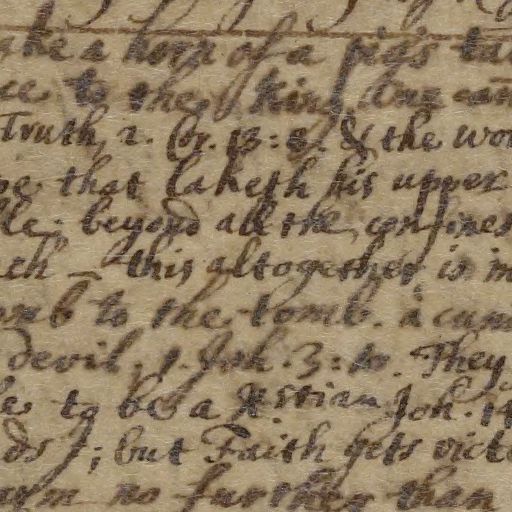 ake a horn of a pigs tai
ce to the king. One can
Truth, 2. Cr. 13:8. & the wor
pe that taketh his upper
lle: beyond all the confines
ch - this altogether is im
omb to the tomb. a cunn
devil. 1. Joh. 3:10. They
le to be a Xstian Joh. 14
ds); but Faith gets victo
arm no further than